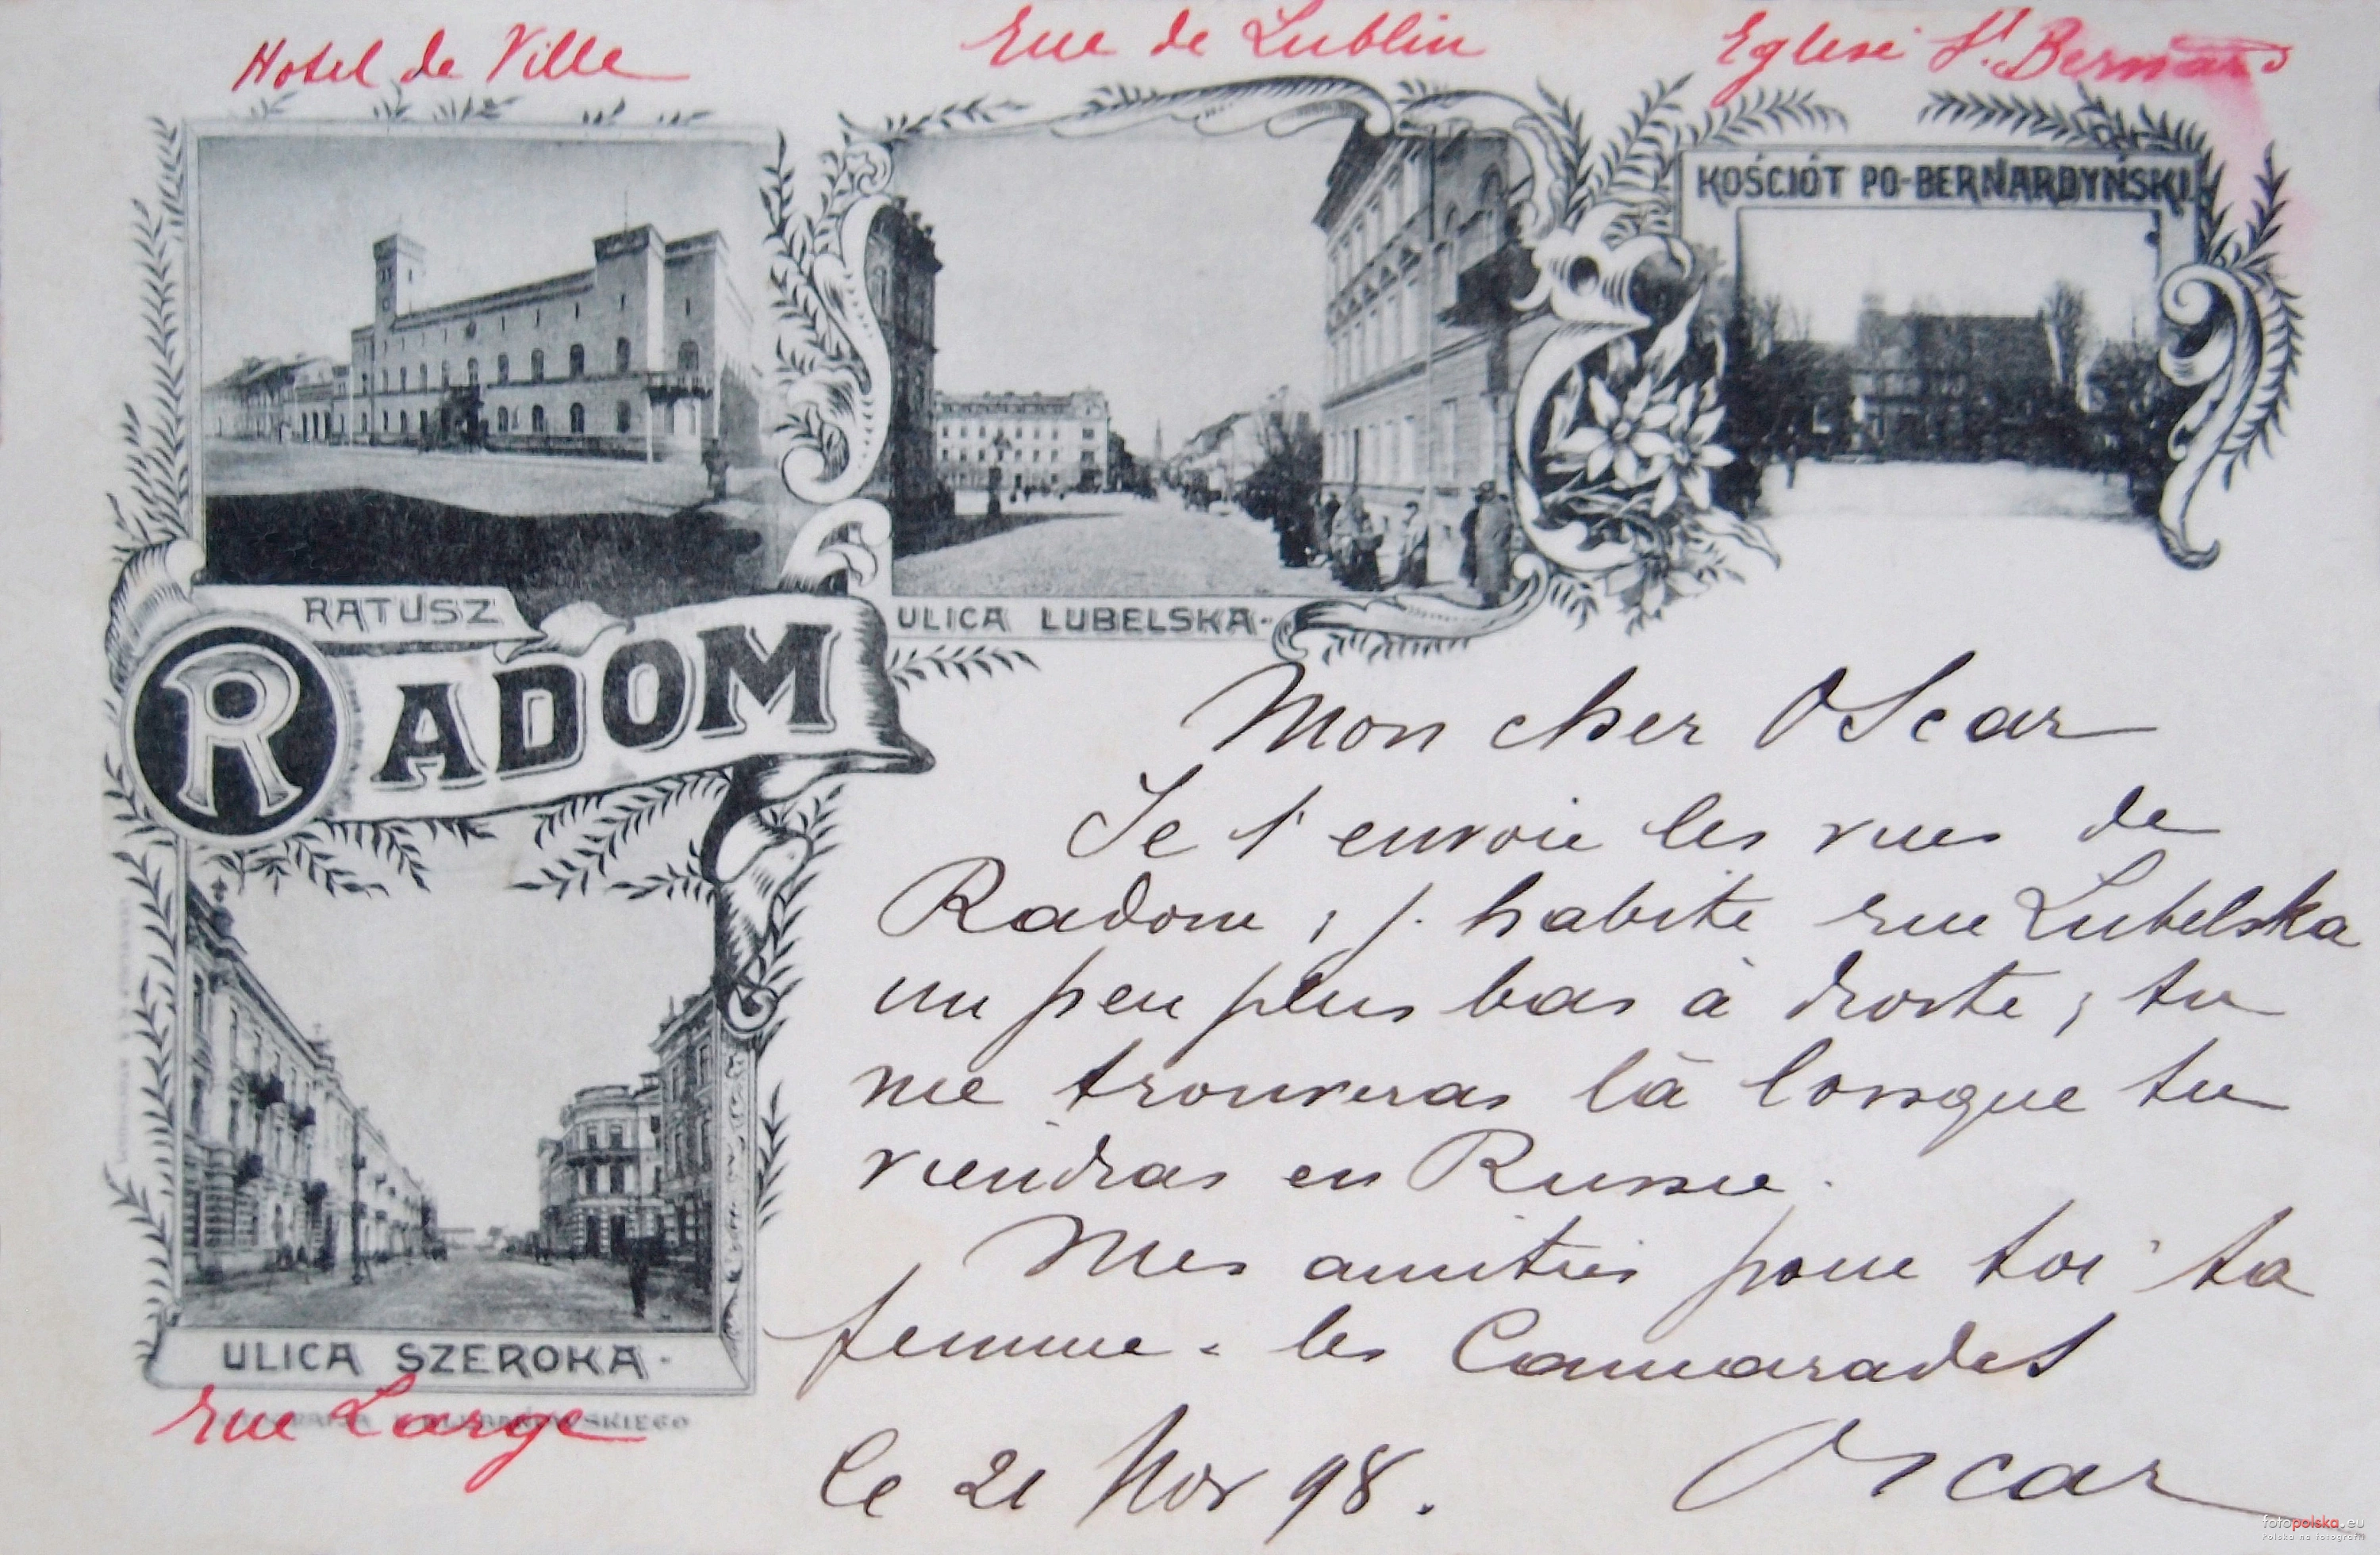 Hotel de Ville
Rue de Lublin
Eglise St. Bernard
KOŚCIÓŁ PO-BERNARDYŃSKI
RATUSZ
ULICA LUBELSKA
RADOM
Mon cher Oscar
Je t'envoie les vues de
Radom ; j. habite rue Lubelska
un peu plus bas à droite ; tu
me trouveras là lorsque tu
viendras en Russie.
Mes amitiés pour toi ta
femme & les Camarades
Oscar
le 21 Nov 98.
ULICA SZEROKA
rue Large
fotopolska.eu
Polska na fotografii